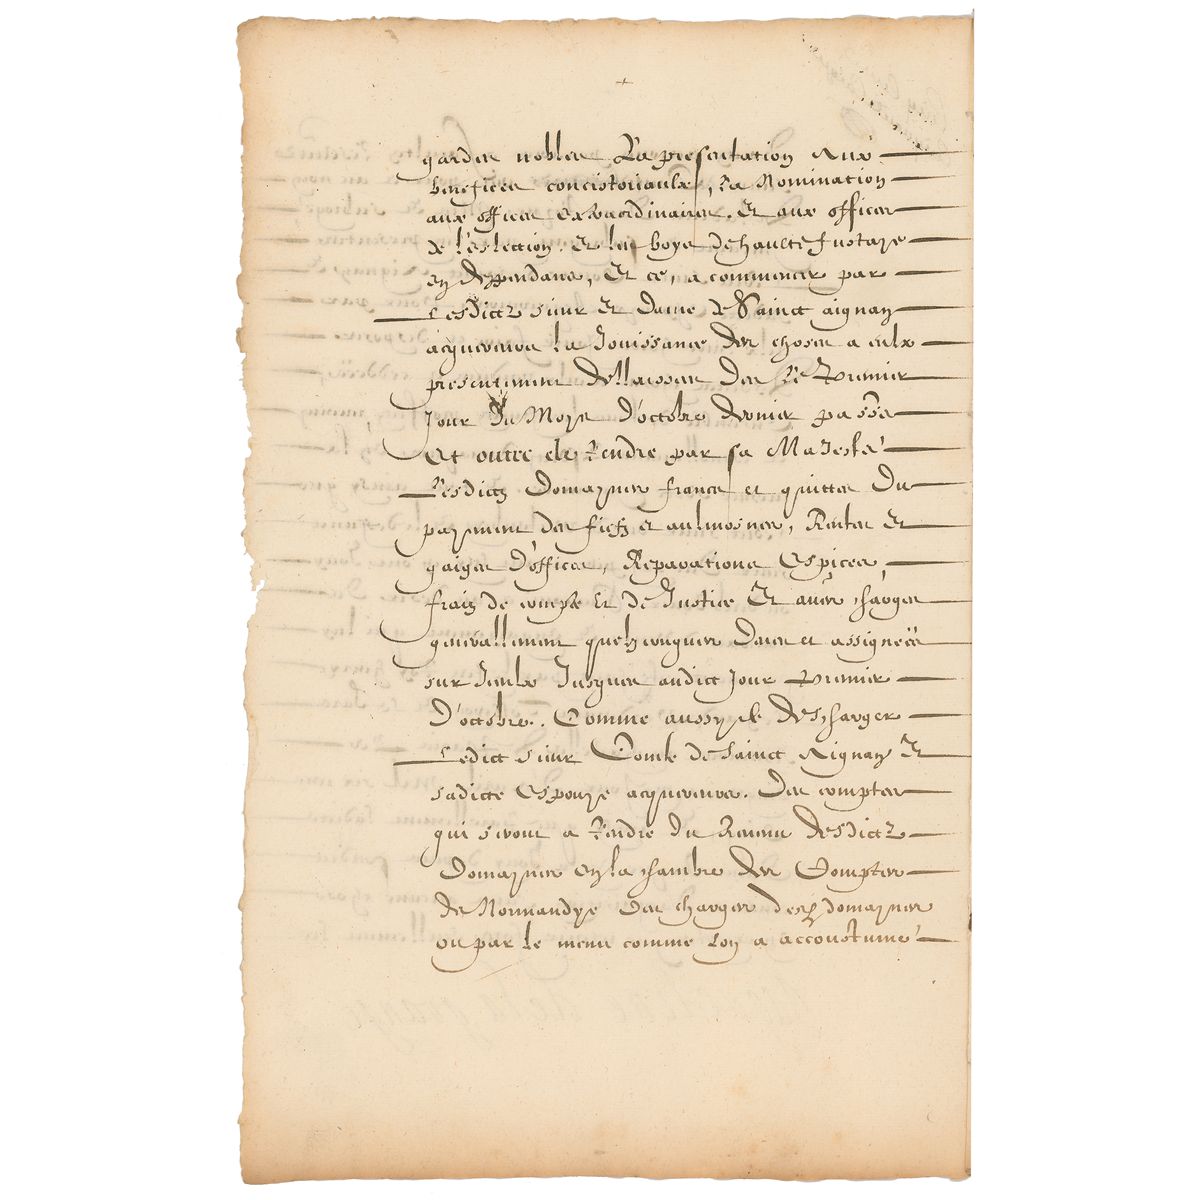 +
gardes nobles La presentation aux
benefices concistoriaulx, La Nomination
aux offices extraordinaires. Et aux offices
de l'eslection. et les boys de haulte fustaye
en deppendans, Et ce, a commencer par
Lesdictz sieur et dame de Sainct aignan
acquereurs la Jouissance des choses a eulx
presentement dellaissees des Le Premier
Jour du Moys d'octobre dernier passé
Et outre de Rendre par sa Majesté
Lesdictz Domaynes francs et quittes Du
payement des fiefz et aulmosnes, Rentes Et
gaiges D'offices, Reparations Espices,
fraiz de compte Et de Justice Et autres charges
generallement quelzconques deues et assignées
sur Iceulx Jusques audict Jour Premier
D'octobre. Comme aussy de descharger
Ledict sieur Comte de Sainct Aignan Et
sadicte Espouze acquereurs. Des comptes
qui seront a Rendre du Revenu desdictz
Domaynes en la chambre des Comptes
de Normandye Des charges desd domaynes
ou par le menu comme Lon a accoustumé